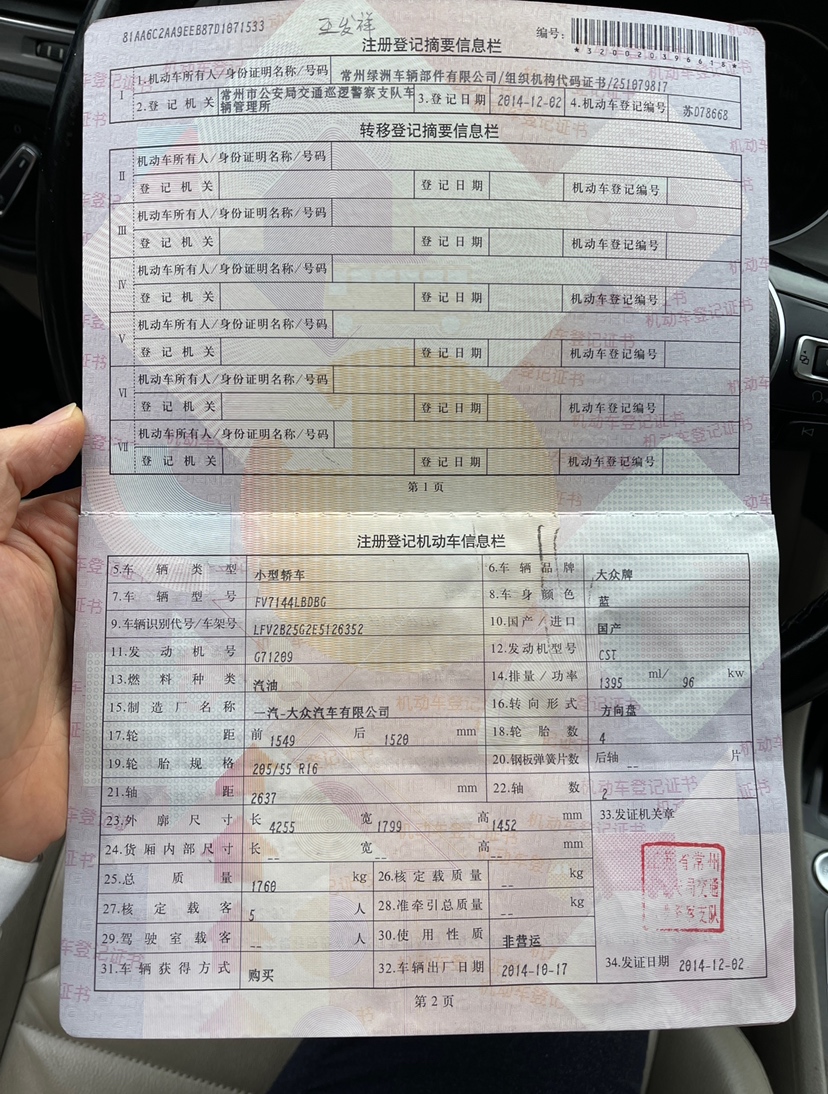 81AA6C2AA9EEB87D1071533
注册登记摘要信息栏
编号:
*320020396616*
Ⅰ 1.机动车所有人/身份证明名称/号码 常州绿洲车辆部件有限公司/组织机构代码证书/251079817
2.登记机关 常州市公安局交通巡逻警察支队车辆管理所 3.登记日期 2014-12-02 4.机动车登记编号 苏D78668
转移登记摘要信息栏
Ⅱ 机动车所有人/身份证明名称/号码
登记机关 登记日期 机动车登记编号
Ⅲ 机动车所有人/身份证明名称/号码
登记机关 登记日期 机动车登记编号
Ⅳ 机动车所有人/身份证明名称/号码
登记机关 登记日期 机动车登记编号
Ⅴ 机动车所有人/身份证明名称/号码
登记机关 登记日期 机动车登记编号
Ⅵ 机动车所有人/身份证明名称/号码
登记机关 登记日期 机动车登记编号
Ⅶ 机动车所有人/身份证明名称/号码
登记机关 登记日期 机动车登记编号
第1页
注册登记机动车信息栏
5.车辆类型 小型轿车 6.车辆品牌 大众牌
7.车辆型号 FV7144LBDBG 8.车身颜色 蓝
9.车辆识别代号/车架号 LFV2B25G2E5126352 10.国产/进口 国产
11.发动机号 G71209 12.发动机型号 CST
13.燃料种类 汽油 14.排量/功率 1395 ml/ 96 kw
15.制造厂名称 一汽-大众汽车有限公司 16.转向形式 方向盘
17.轮距 前 1549 后 1520 mm 18.轮胎数 4
19.轮胎规格 205/55 R16 20.钢板弹簧片数 后轴 -- 片
21.轴距 2637 mm 22.轴数 2
23.外廓尺寸 长 4255 宽 1799 高 1452 mm 33.发证机关章
24.货厢内部尺寸 长 -- 宽 -- 高 -- mm
25.总质量 1760 kg 26.核定载质量 -- kg
27.核定载客 5 人 28.准牵引总质量 -- kg
29.驾驶室载客 -- 人 30.使用性质 非营运
31.车辆获得方式 购买 32.车辆出厂日期 2014-10-17 34.发证日期 2014-12-02
第2页